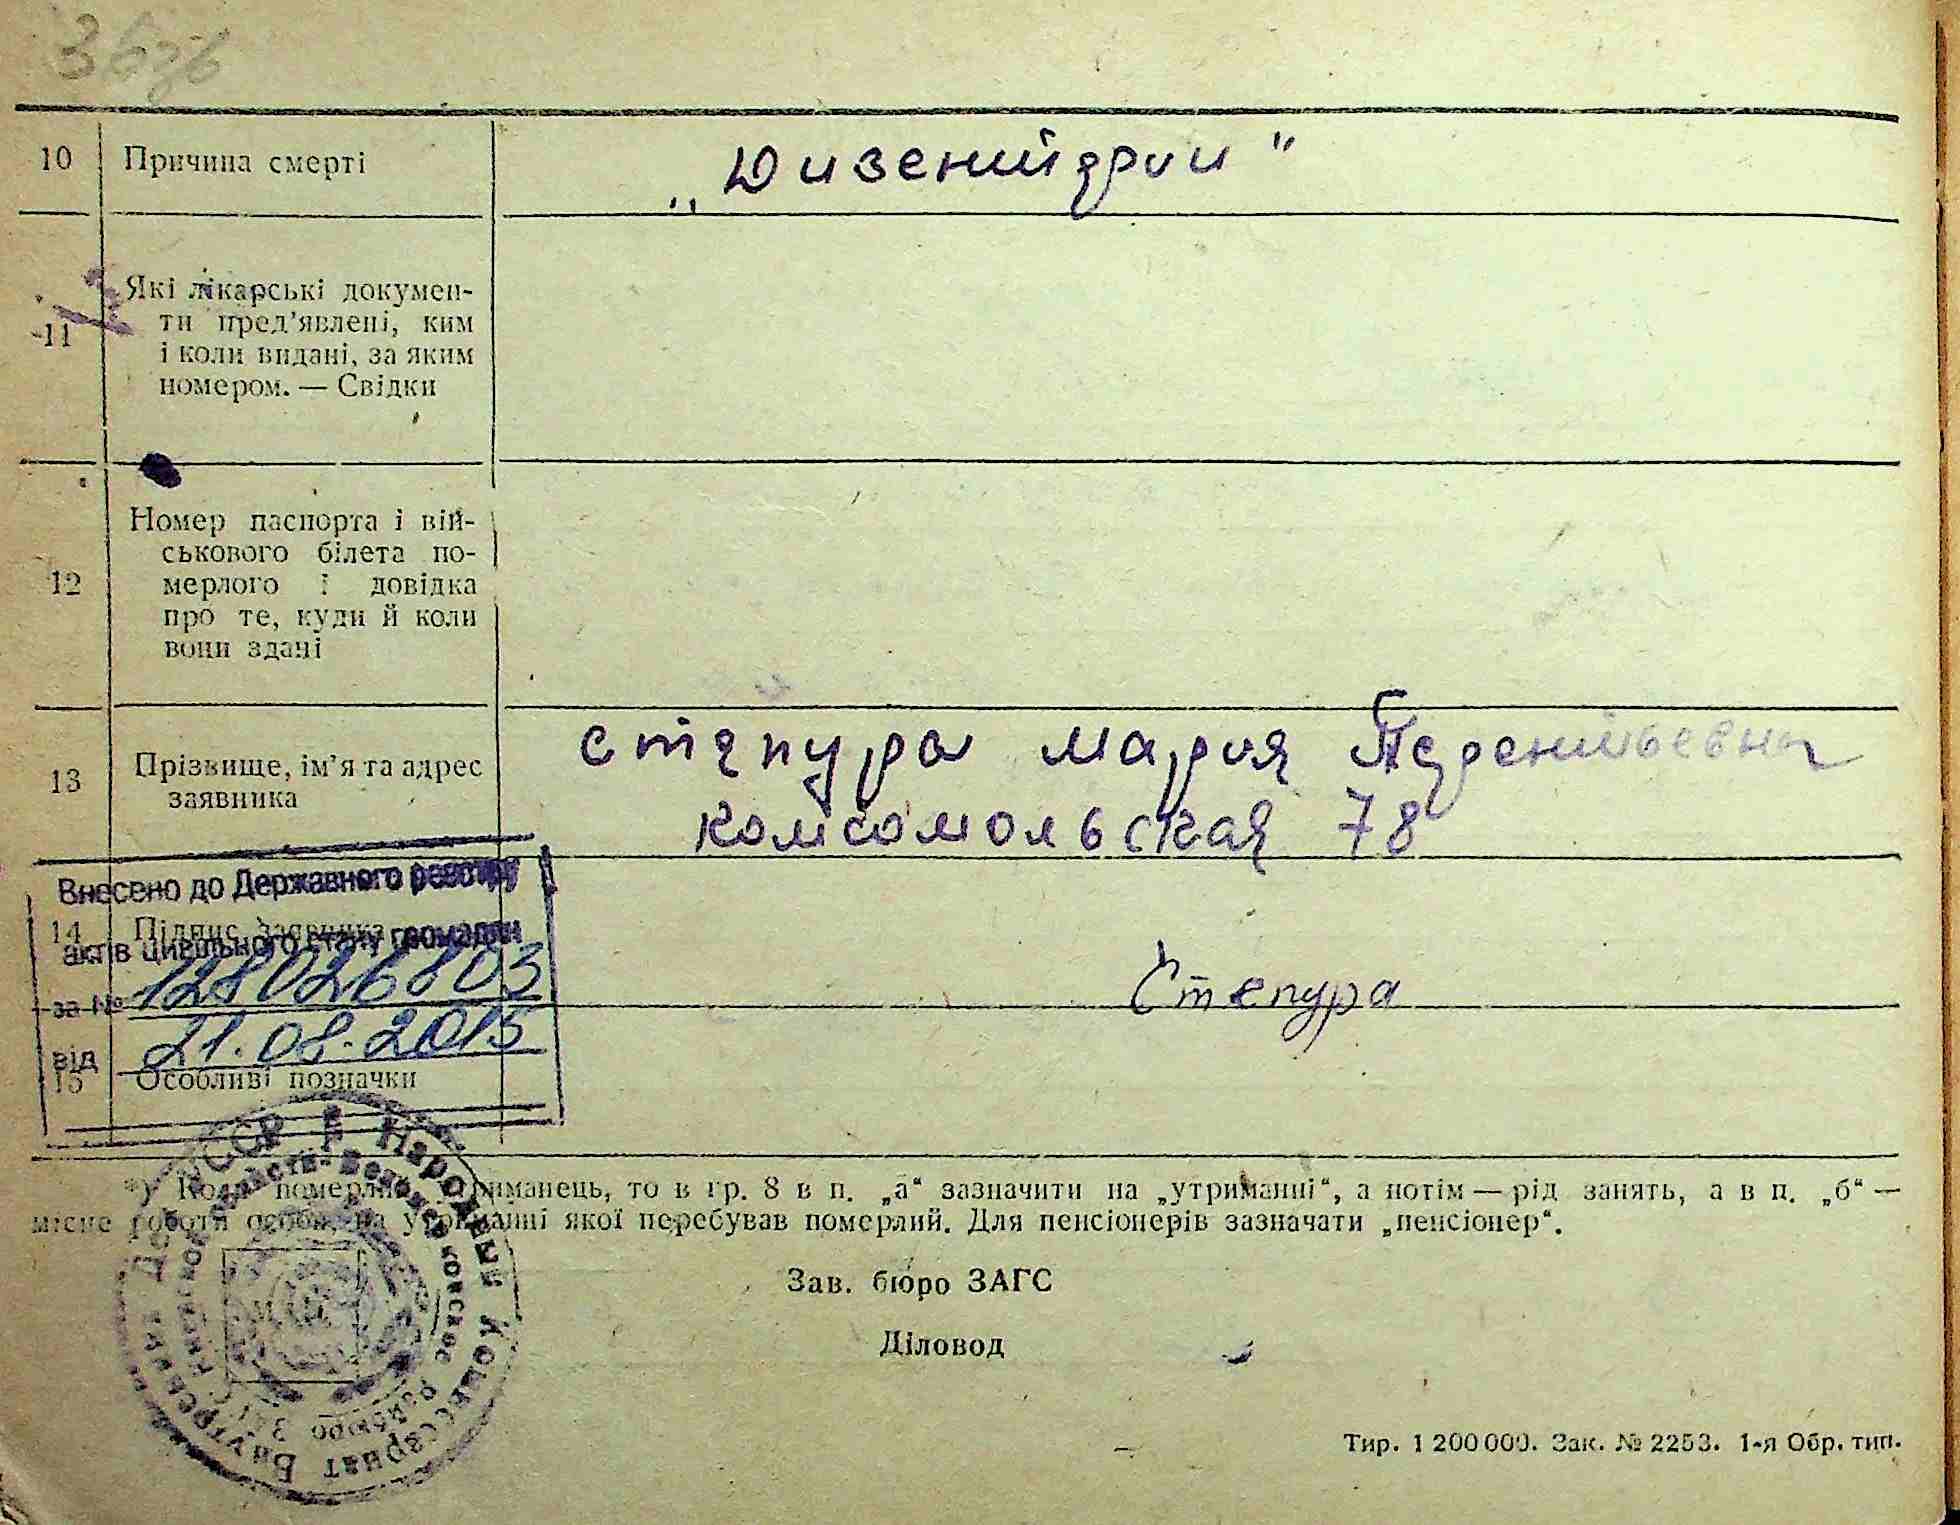 10 Причина смерті „Дизенийдрии"
11 Які лікарські докумен-
ти пред’явлені, ким
і коли видані, за яким
номером. — Свідки
Номер паспорта і вій-
ськового білета по-
12 мерлого і довідка
про те, куди й коли
вони здані
стєпура мария
13 Прізвище, ім’я та адрес
заявника
комсомольская 78
Внесено до Державного реєстру
14 Підпис заявника
актів цивільного стану громадян
за № 128026803
Степура
від 21.08.2015
15 Особливі позначки
*) Коли померлий утриманець, то в гр. 8 в п. „а“ зазначити на „утриманні“, а потім — рід занять, а в п. „б“ —
місце роботи особи, на утриманні якої перебував померлий. Для пенсіонерів зазначати „пенсіонер“.
Зав. бюро ЗАГС
Діловод
Народний Комиссариат Внутрських
УССР
Тир. 1 200 000. Зак. № 2253. 1-я Обр. тип.